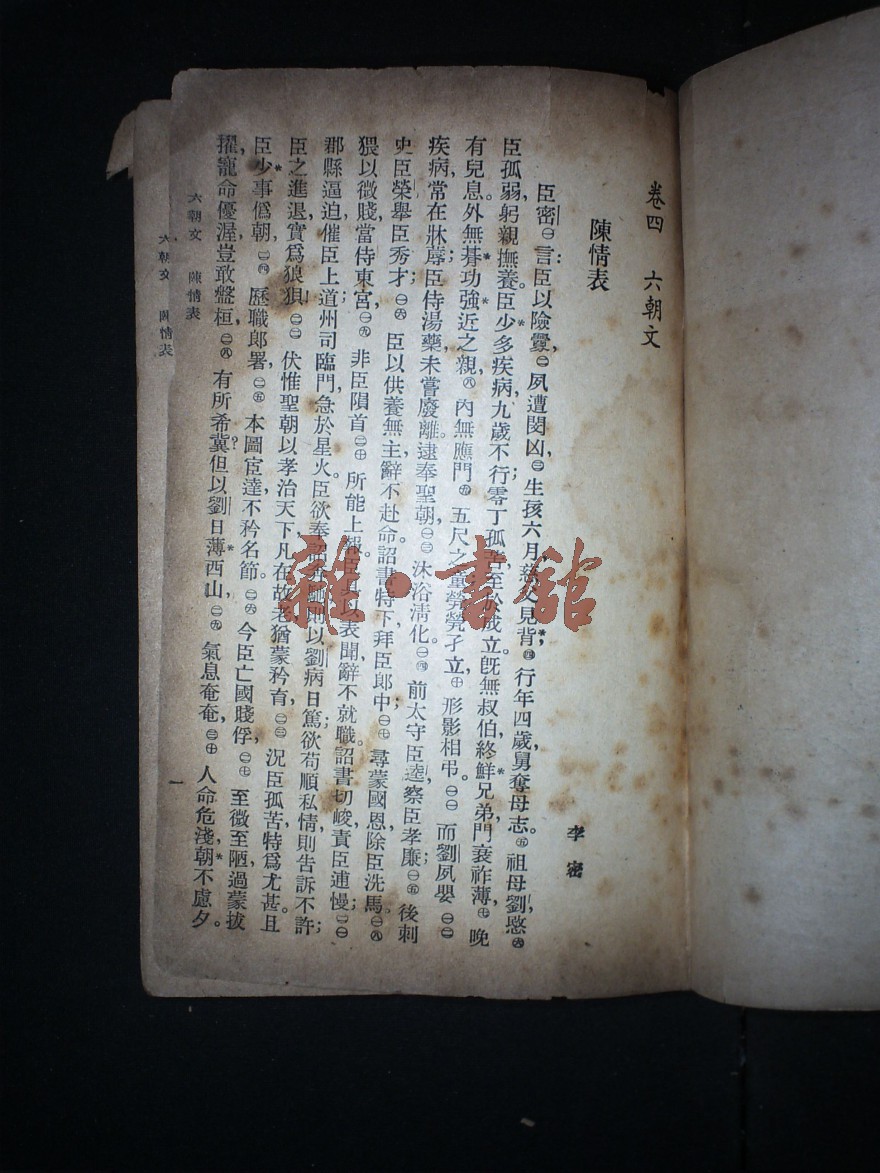 卷四　六朝文
陳情表
李密
臣密㊀言：臣以險釁，㊁夙遭閔凶，㊂生孩六月，慈父見背；㊃行年四歲，舅奪母志。㊄祖母劉愍㊅
臣孤弱，躬親撫養。臣少多疾病，九歲不行，零丁孤苦，至於成立；旣無叔伯，終鮮兄弟，門衰祚薄，㊆晚
有兒息。外無朞功強近之親，㊇內無應門㊈五尺之童，煢煢孑立，㊉形影相弔。㊀㊀而劉夙嬰㊀㊁
疾病，常在牀蓐；臣侍湯藥，未嘗廢離。逮奉聖朝，㊀㊂沐浴淸化。㊀㊃前太守臣逵，察臣孝廉；㊀㊄後刺
史臣榮，舉臣秀才。㊀㊅臣以供養無主，辭不赴命。詔書特下，拜臣郎中，㊀㊆尋蒙國恩，除臣洗馬。㊀㊇
猥以微賤，當侍東宮，㊀㊈非臣隕首㊁㊉所能上報。臣具以表聞，辭不就職。詔書切峻，責臣逋慢；㊁㊀
郡縣逼迫，催臣上道；州司臨門，急於星火。臣欲奉詔奔馳，則以劉病日篤；欲苟順私情，則告訴不許；
臣之進退，實爲狼狽！㊁㊁伏惟聖朝以孝治天下，凡在故老，猶蒙矜育，㊁㊂況臣孤苦，特爲尤甚。且
臣少事僞朝，㊁㊃歷職郎署，㊁㊄本圖宦達，不矜名節。㊁㊅今臣亡國賤俘，㊁㊆至微至陋，過蒙拔
擢，寵命優渥，豈敢盤桓，㊁㊇有所希冀？但以劉日薄西山，㊁㊈氣息奄奄，㊂㊉人命危淺，朝不慮夕。
六朝文　陳情表
一
六朝文　陳情表
雜·書館